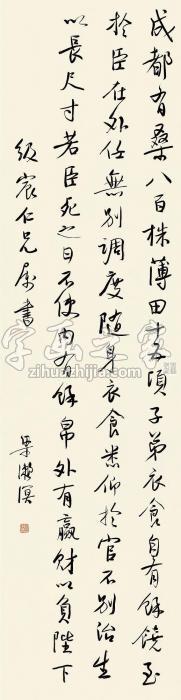 成都有桑八百株薄田十五頃子弟衣食自有餘饒至
於臣在外任無別調度隨身衣食悉仰於官不別治生
以長尺寸若臣死之日不使內有餘帛外有贏財以負陛下
級宸仁兄屬書
梁漱溟
字画之家
zihuazhijia.com